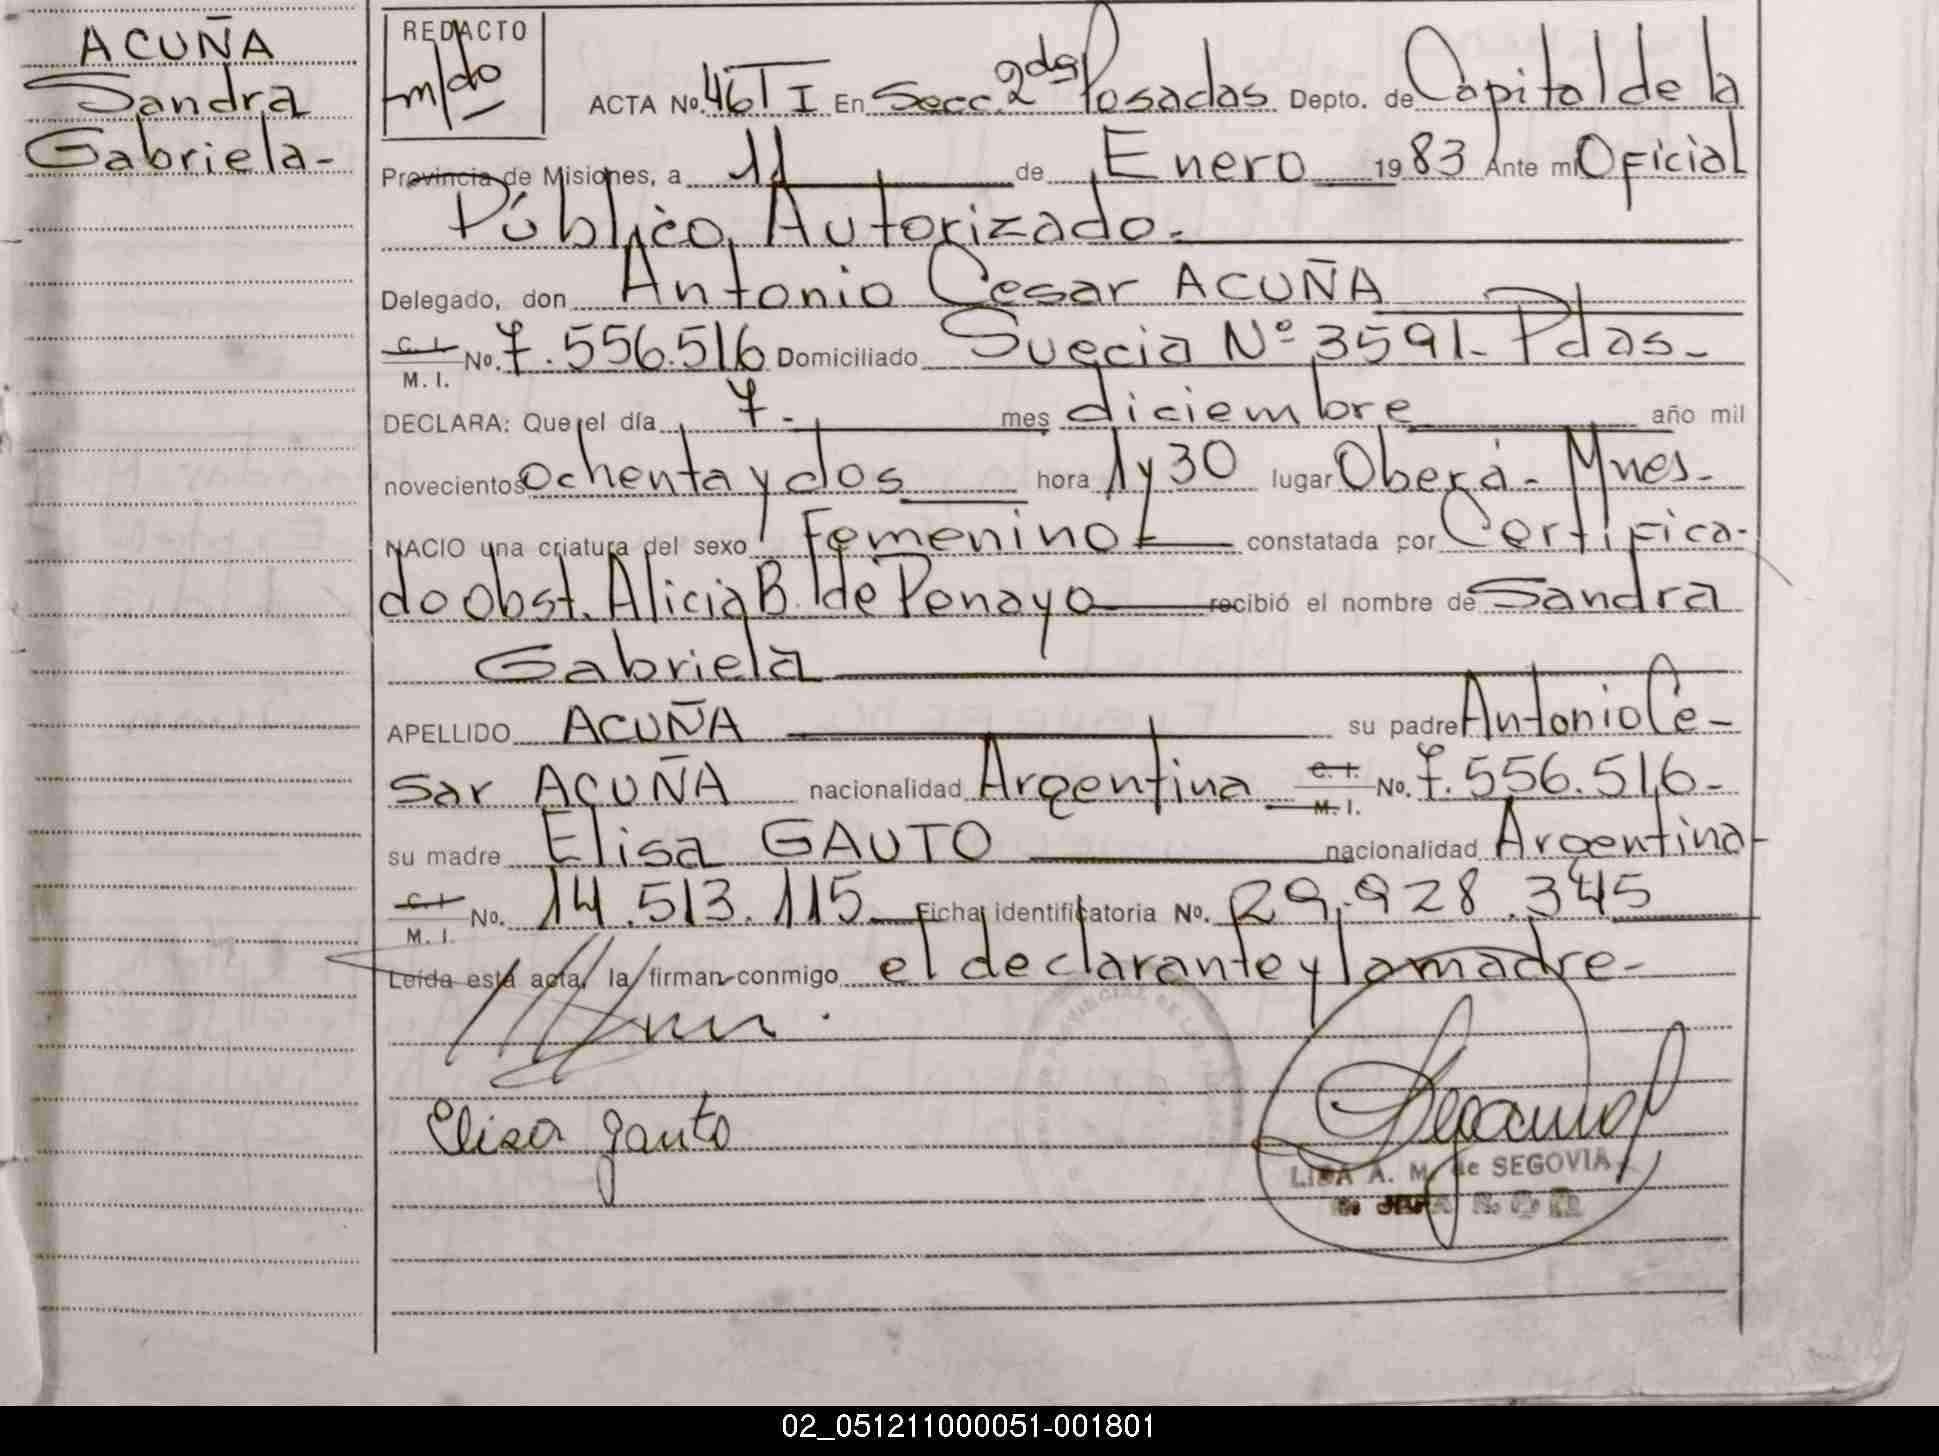 ACUÑA
Sandra
Gabriela-
REDACTO
m/do
ACTA No. 46 T I En Secc. 2da Posadas Depto. de Capital de la
Provincia de Misiones, a 11 de Enero 1983 Ante mi Oficial
Público Autorizado.-
Delegado, don Antonio Cesar ACUÑA
C. I. M. I. No. 7.556.516 Domiciliado Suecia Nº 3591- Pdas-
DECLARA: Que el día 7- mes diciembre año mil
novecientos ochenta y dos hora 1 y 30 lugar Oberá- Mnes-
NACIO una criatura del sexo Femenino constatada por Certifica-
do obst. Alicia B. de Penayo recibió el nombre de Sandra
Gabriela
APELLIDO ACUÑA su padre Antonio Ce-
sar ACUÑA nacionalidad Argentina C. I. M. I. No. 7.556.516-
su madre Elisa GAUTO nacionalidad Argentina-
C. I. M. I. No. 14.513.115 Ficha identificatoria No. 29.928.345
Leída esta acta, la firman conmigo el declarante y la madre-
Elisa gauto
A. M. de SEGOVIA
02_051211000051-001801